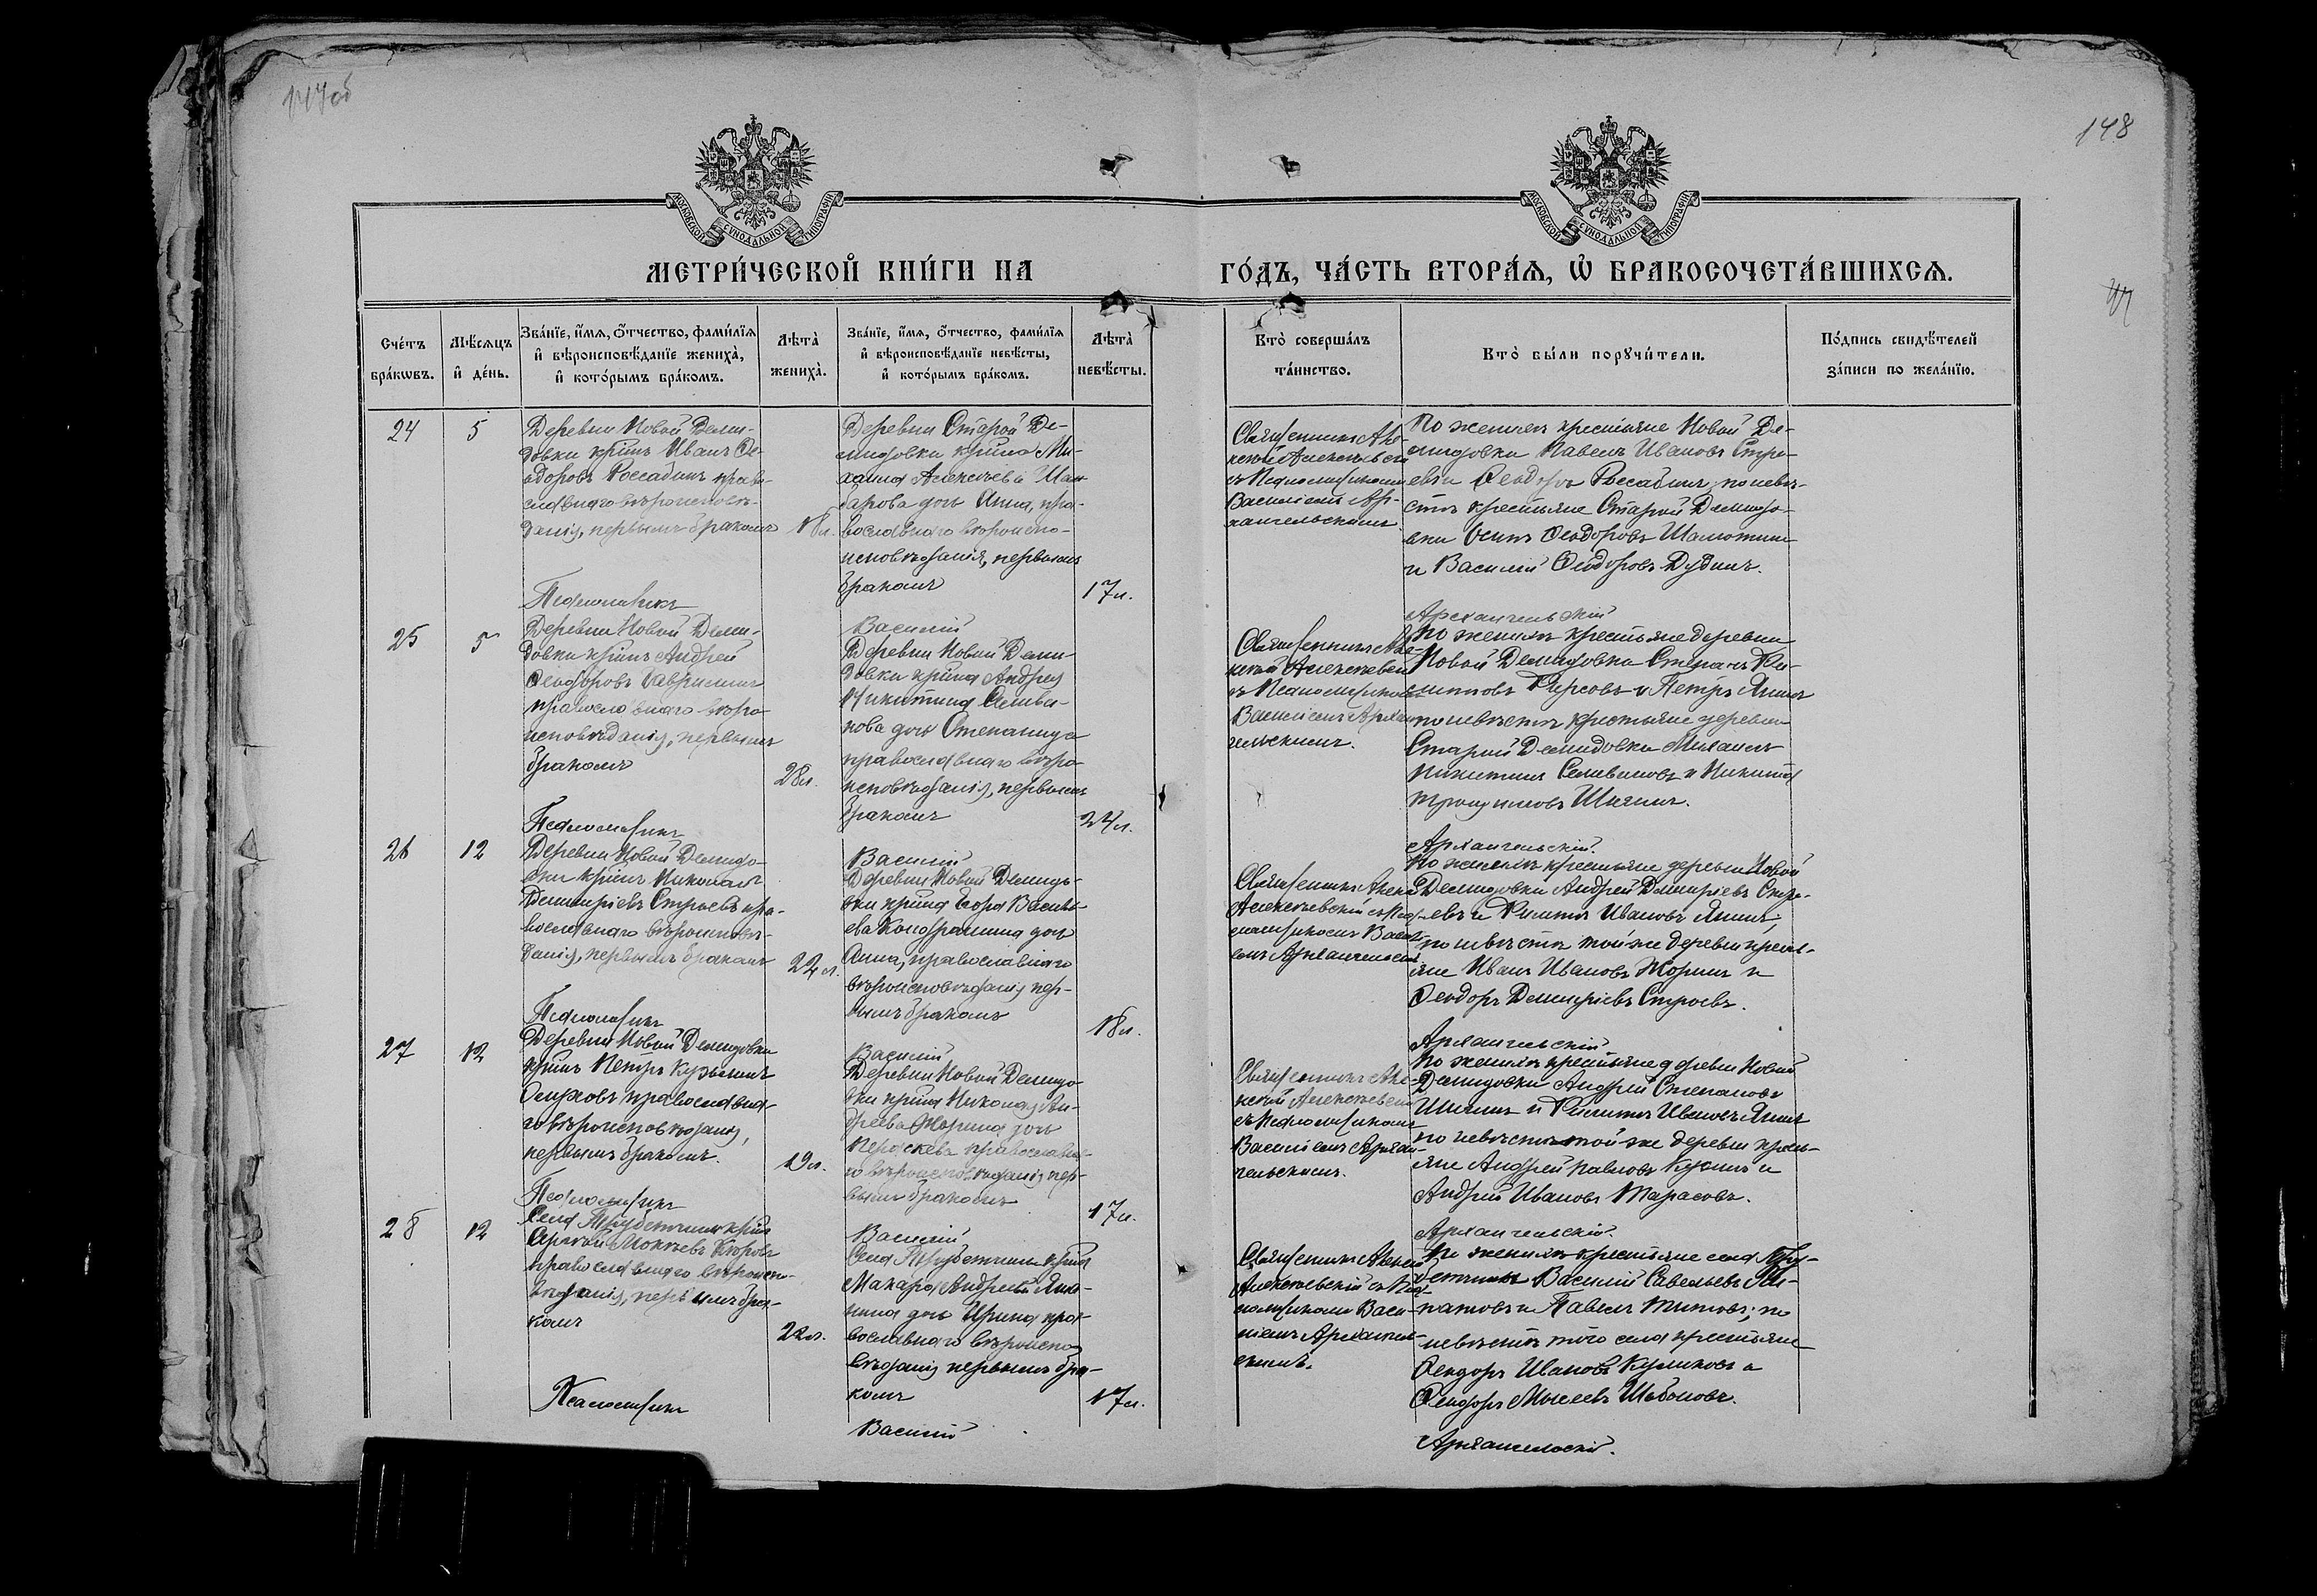 147об
148
МОСКОВСКОЙ СѴНОДАЛЬНОЙ ТИПОГРАФІИ
МОСКОВСКОЙ СѴНОДАЛЬНОЙ ТИПОГРАФІИ
МЕТРИ́ЧЕСКОЙ КНИ́ГИ НА
ГО́ДЪ, ЧА́СТЬ ВТОРА́Ѧ, Ѽ БРАКОСОЧЕТА́ВШИХСѦ.
Сче́тъ
бра́кѡвъ.
Мѣ́сѧцъ
и҆ де́нь.
Зва́нїе, и҆́мѧ, ѻ҆́тчество, фами́лїѧ
и҆ вѣроисповѣ́данїе жениха̀,
и҆ кото́рымъ бра́комъ.
Лѣта̀
жениха̀.
Зва́нїе, и҆́мѧ, ѻ҆́тчество, фами́лїѧ
и҆ вѣроисповѣ́данїе невѣ́сты,
и҆ кото́рымъ бра́комъ.
Лѣта̀
невѣ́сты.
Кто̀ соверша́лъ
та́инство.
Кто̀ бы́ли порꙋчи́тели.
По́дпись свидѣ́телей
за́писи по жела́нїю.
24
5
Деревни Новой Деми-
довки кр̃инъ Иванъ Ѳе-
одоровъ Россадинъ право-
славнаго вѣроисповѣ-
данія, первымъ бракомъ
18 л.
Деревни Старой Де-
мидовки кр̃ина Ми-
хаила Алексѣева
дочь Анна, пра-
вославнаго вѣроиспо-
исповѣданія, первымъ
бракомъ
17 л.
Священникъ Але-
ксѣй Алексѣевскій
съ Псаломщикомъ
Василіемъ Ар-
хангельскимъ
По женихѣ крестьяне Новой Де-
мидовки Павелъ Ивановъ Стро-
евъ и Ѳеодоръ Россадинъ, по невѣ-
стѣ крестьяне Старой Демидо-
вки Осипъ Ѳеодоровъ
и Василій Ѳеодоровъ Дудинъ.
Псаломщикъ
Василій
Архангельскій
25
5
Деревни Новой Деми-
довки кр̃инъ Андрей
Ѳеодоровъ Гаврилинъ
православнаго вѣро-
исповѣданія, первымъ
бракомъ
28 л.
Деревни Новой Деми-
довки кр̃ина Андрея
Никитина Селива-
нова дочь Степанида
православнаго вѣро-
исповѣданія, первымъ
бракомъ
24 л.
Священникъ Але-
ксѣй Алексѣевскій
съ Псаломщикомъ
Василіемъ Архан-
гельскимъ.
По женихѣ крестьяне деревни
Новой Демидовки Степанъ
и Петръ Янинъ
по невѣстѣ крестьяне деревни
Старой Демидовки Михаилъ
Никитинъ Селивановъ и Никита
Псаломщикъ
Василій
Архангельскій.
26
12
Деревни Новой Демидо-
вки кр̃инъ Николай
Димитріевъ Строевъ пра-
вославнаго вѣроисповѣ-
данія, первымъ бракомъ
22 л.
Деревни Новой Демидо-
вки кр̃ина Егора Василь-
ева Кондрашина дочь
Анна, православнаго
вѣроисповѣданія пер-
вымъ бракомъ
18 л.
Священникъ Алексѣй
Алексѣевскій съ Пса-
ломщикомъ Васи-
емъ Архангельскимъ
По женихѣ крестьяне деревни Новой
Демидовки Андрей Димитріевъ Стро-
евъ и Филиппъ Ивановъ Янинъ,
по невѣстѣ той же деревни кресть-
яне Иванъ Ивановъ Жоринъ и
Ѳеодоръ Димитріевъ Строевъ.
Псаломщикъ
Василій
Архангельскій
27
12
Деревни Новой Демидовки
кр̃инъ Петръ Кузьминъ
православна-
го вѣроисповѣданія,
первымъ бракомъ.
19 л.
Деревни Новой Демидо-
вки кр̃ина Николая Ан-
дреева Жорина дочь
Параскева православна-
го вѣроисповѣданія пер-
вымъ бракомъ
17 л.
Священникъ Але-
ксѣй Алексѣевскій
съ Псаломщикомъ
Василіемъ Архан-
гельскимъ.
По женихѣ крестьяне деревни Новой
Демидовки Андрей Степановъ
и Филиппъ Ивановъ Янинъ
по невѣстѣ той же деревни кресть-
яне Андрей Павловъ и
Андрей Ивановъ Тарасовъ.
Псаломщикъ
Василій
Архангельскій.
28
12
Села Трубетчина кр̃инъ
Сергѣй Мокѣевъ
православнаго вѣроиспо-
вѣданія, первымъ бра-
комъ
22 л.
Села Трубетчина кр̃ина
Макара Андреева
дочь Ирина пра-
вославнаго вѣроиспо-
вѣданія первымъ бра-
комъ
17 л.
Священникъ Алексѣй
Алексѣевскій съ Пса-
ломщикомъ Васи-
ліемъ Архангель-
скимъ.
По женихѣ крестьяне села Тру-
бетчина Василій Савельевъ
и Павелъ Титовъ; по
невѣстѣ того села крестьяне
Ѳеодоръ Ивановъ Куликовъ и
Ѳеодоръ
Псаломщикъ
Василій
Архангельскій.